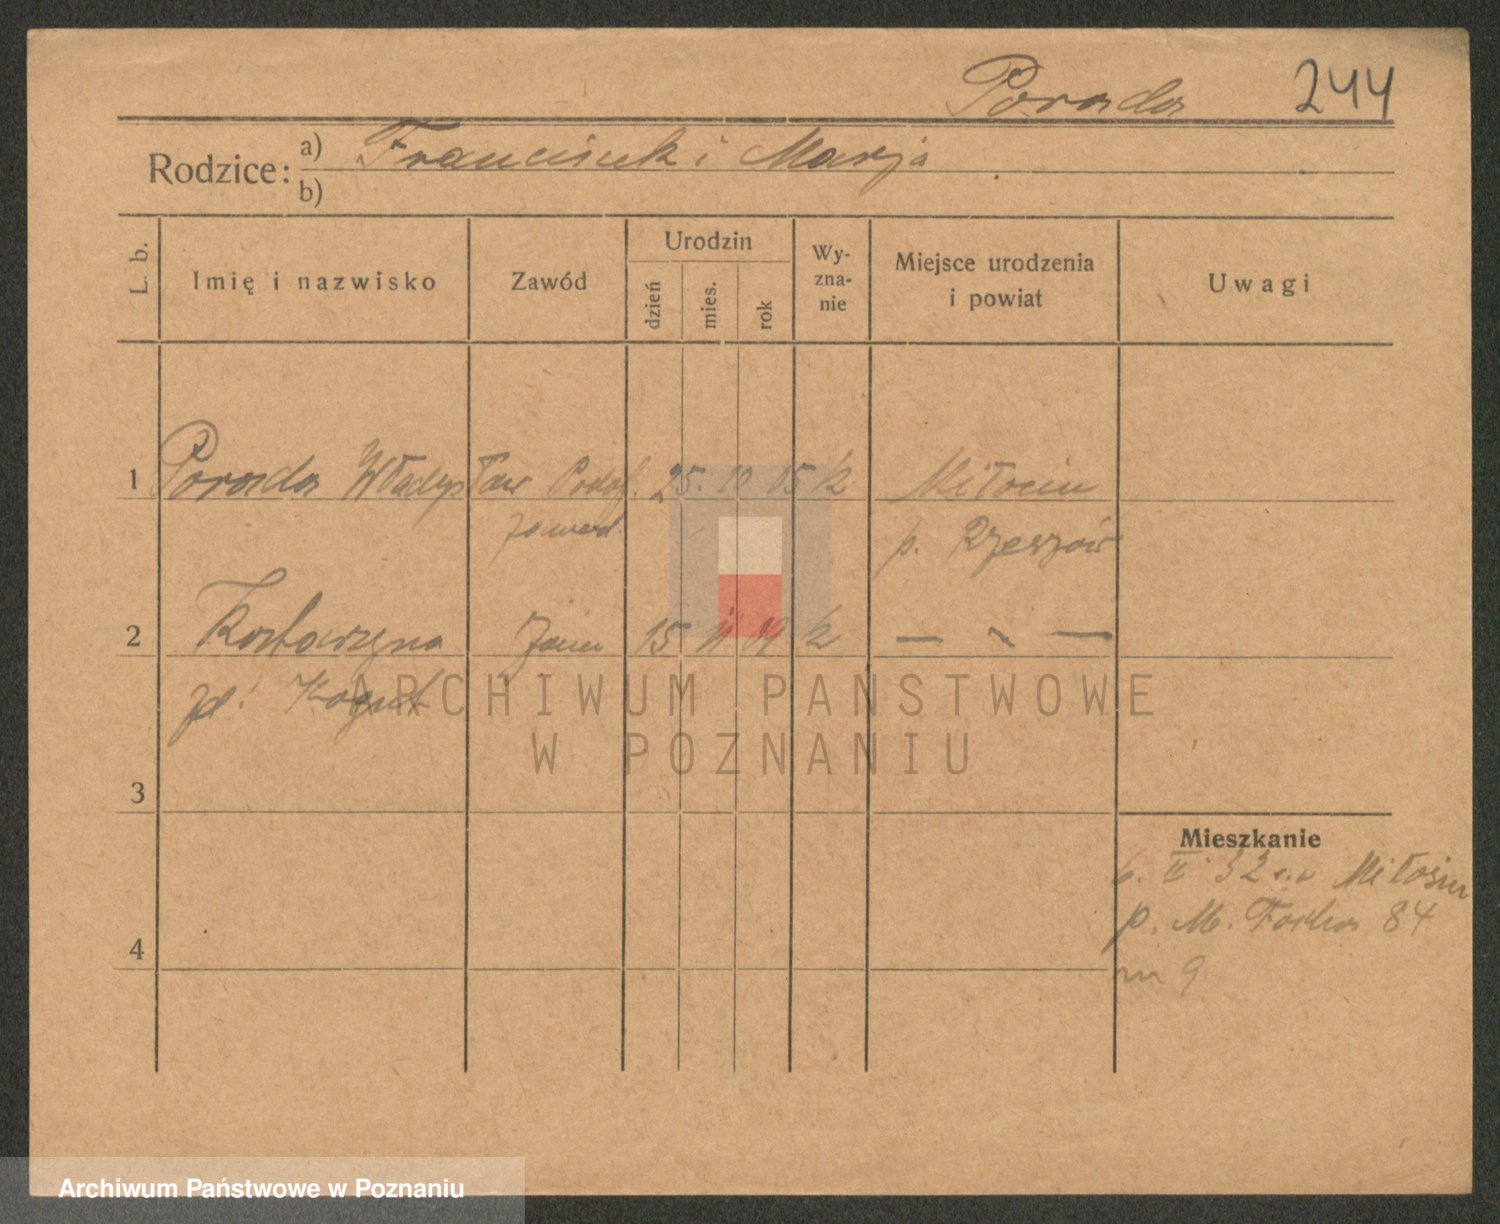 Porada 244
Rodzice: a) Franciszek i Marja
b)
L. b. Imię i nazwisko Zawód Urodzin dzień mies. rok Wy-zna-nie Miejsce urodzenia i powiat Uwagi
1 Porada Władysław Podof. 25. 10 05 k Miłocin
zawod. p. Rzeszów
2 Katarzyna żona 15 11 09 k — " —
zd. Kogut
3
Mieszkanie
6. II 32 Miłocin
4 p. M. Focha 84
m 9
ARCHIWUM PAŃSTWOWE
W POZNANIU
Archiwum Państwowe w Poznaniu